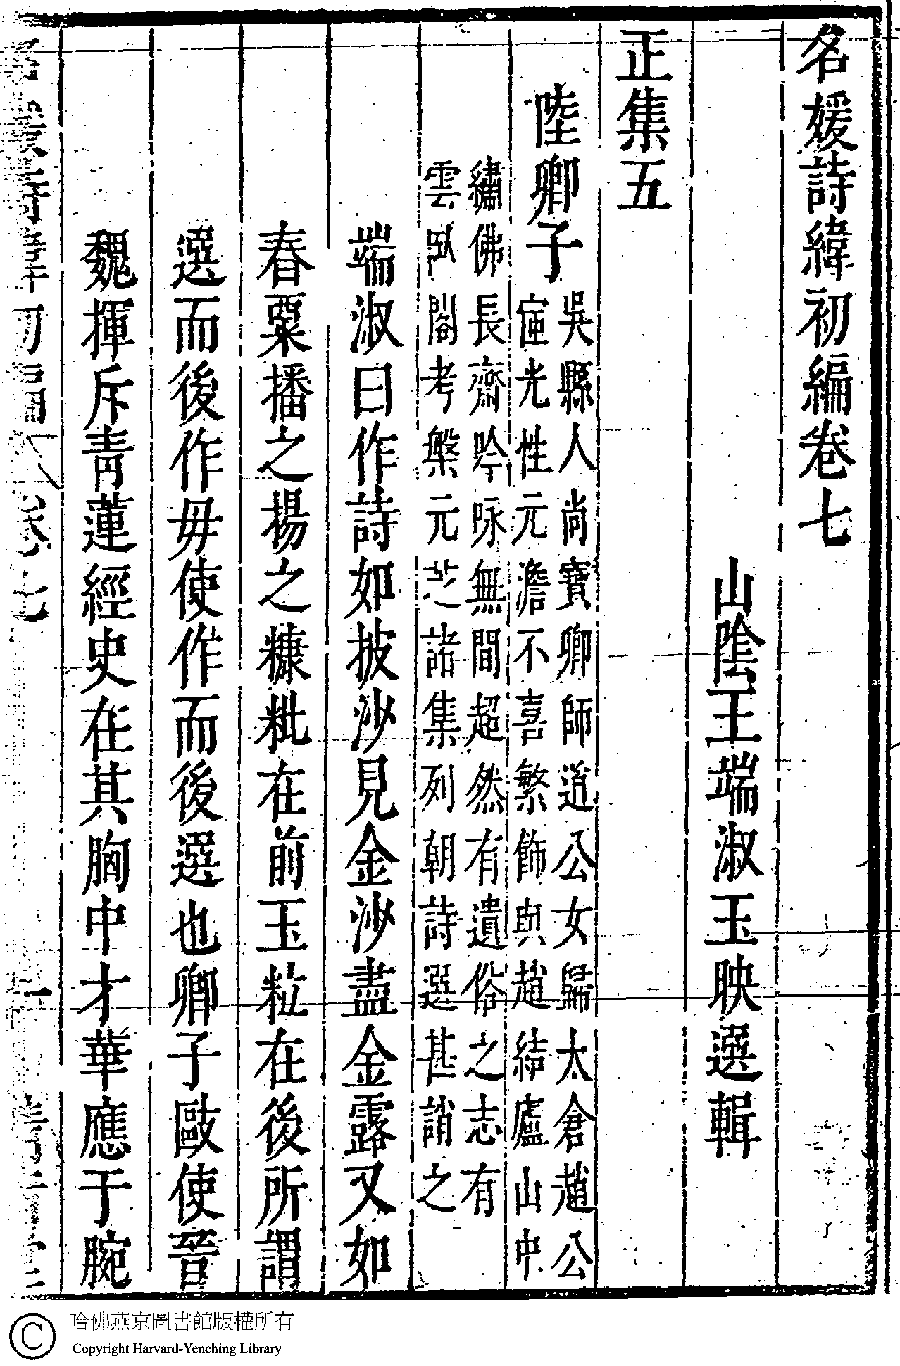 名媛詩緯初編卷七
山陰王端淑玉映選輯
正集五
陸卿子
吳縣人尚寶卿師道公女歸太倉趙公
宧光性元澹不喜繁飾與趙結廬山中
繡佛長齋吟咏無間超然有遺俗之志有
雲臥閣考槃元芝諸集列朝詩選甚誚之
端淑曰作詩如披沙見金沙盡金露又如
舂粟播之揚之糠粃在前玉粒在後所謂
選而後作毋使作而後選也卿子歐使晉
魏揮斥青蓮經史在其胸中才華應于腕
名媛詩緯初編 卷七 一
哈佛燕京圖書館版權所有
Copyright Harvard-Yenching Library